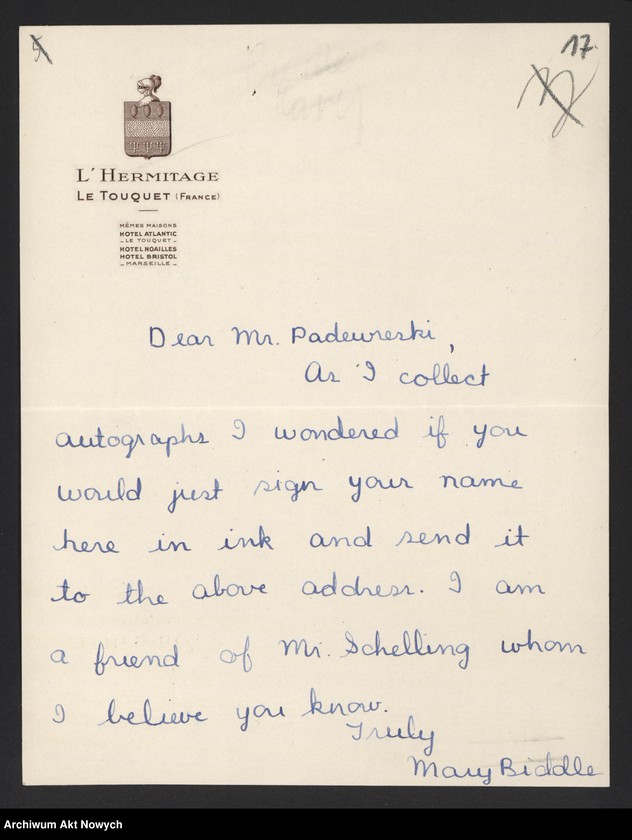 17.
L'HERMITAGE
LE TOUQUET (FRANCE)
MÊMES MAISONS
HOTEL ATLANTIC
_ LE TOUQUET _
HOTEL NOAILLES
HOTEL BRISTOL
_ MARSEILLE _
Dear Mr. Padewreski,
As I collect
autographs I wondered if you
would just sign your name
here in ink and send it
to the above address. I am
a friend of Mr. Schelling whom
I believe you know.
Truly
Mary Biddle
Archiwum Akt Nowych